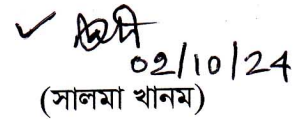 02/10/24
(সালমা খানম)